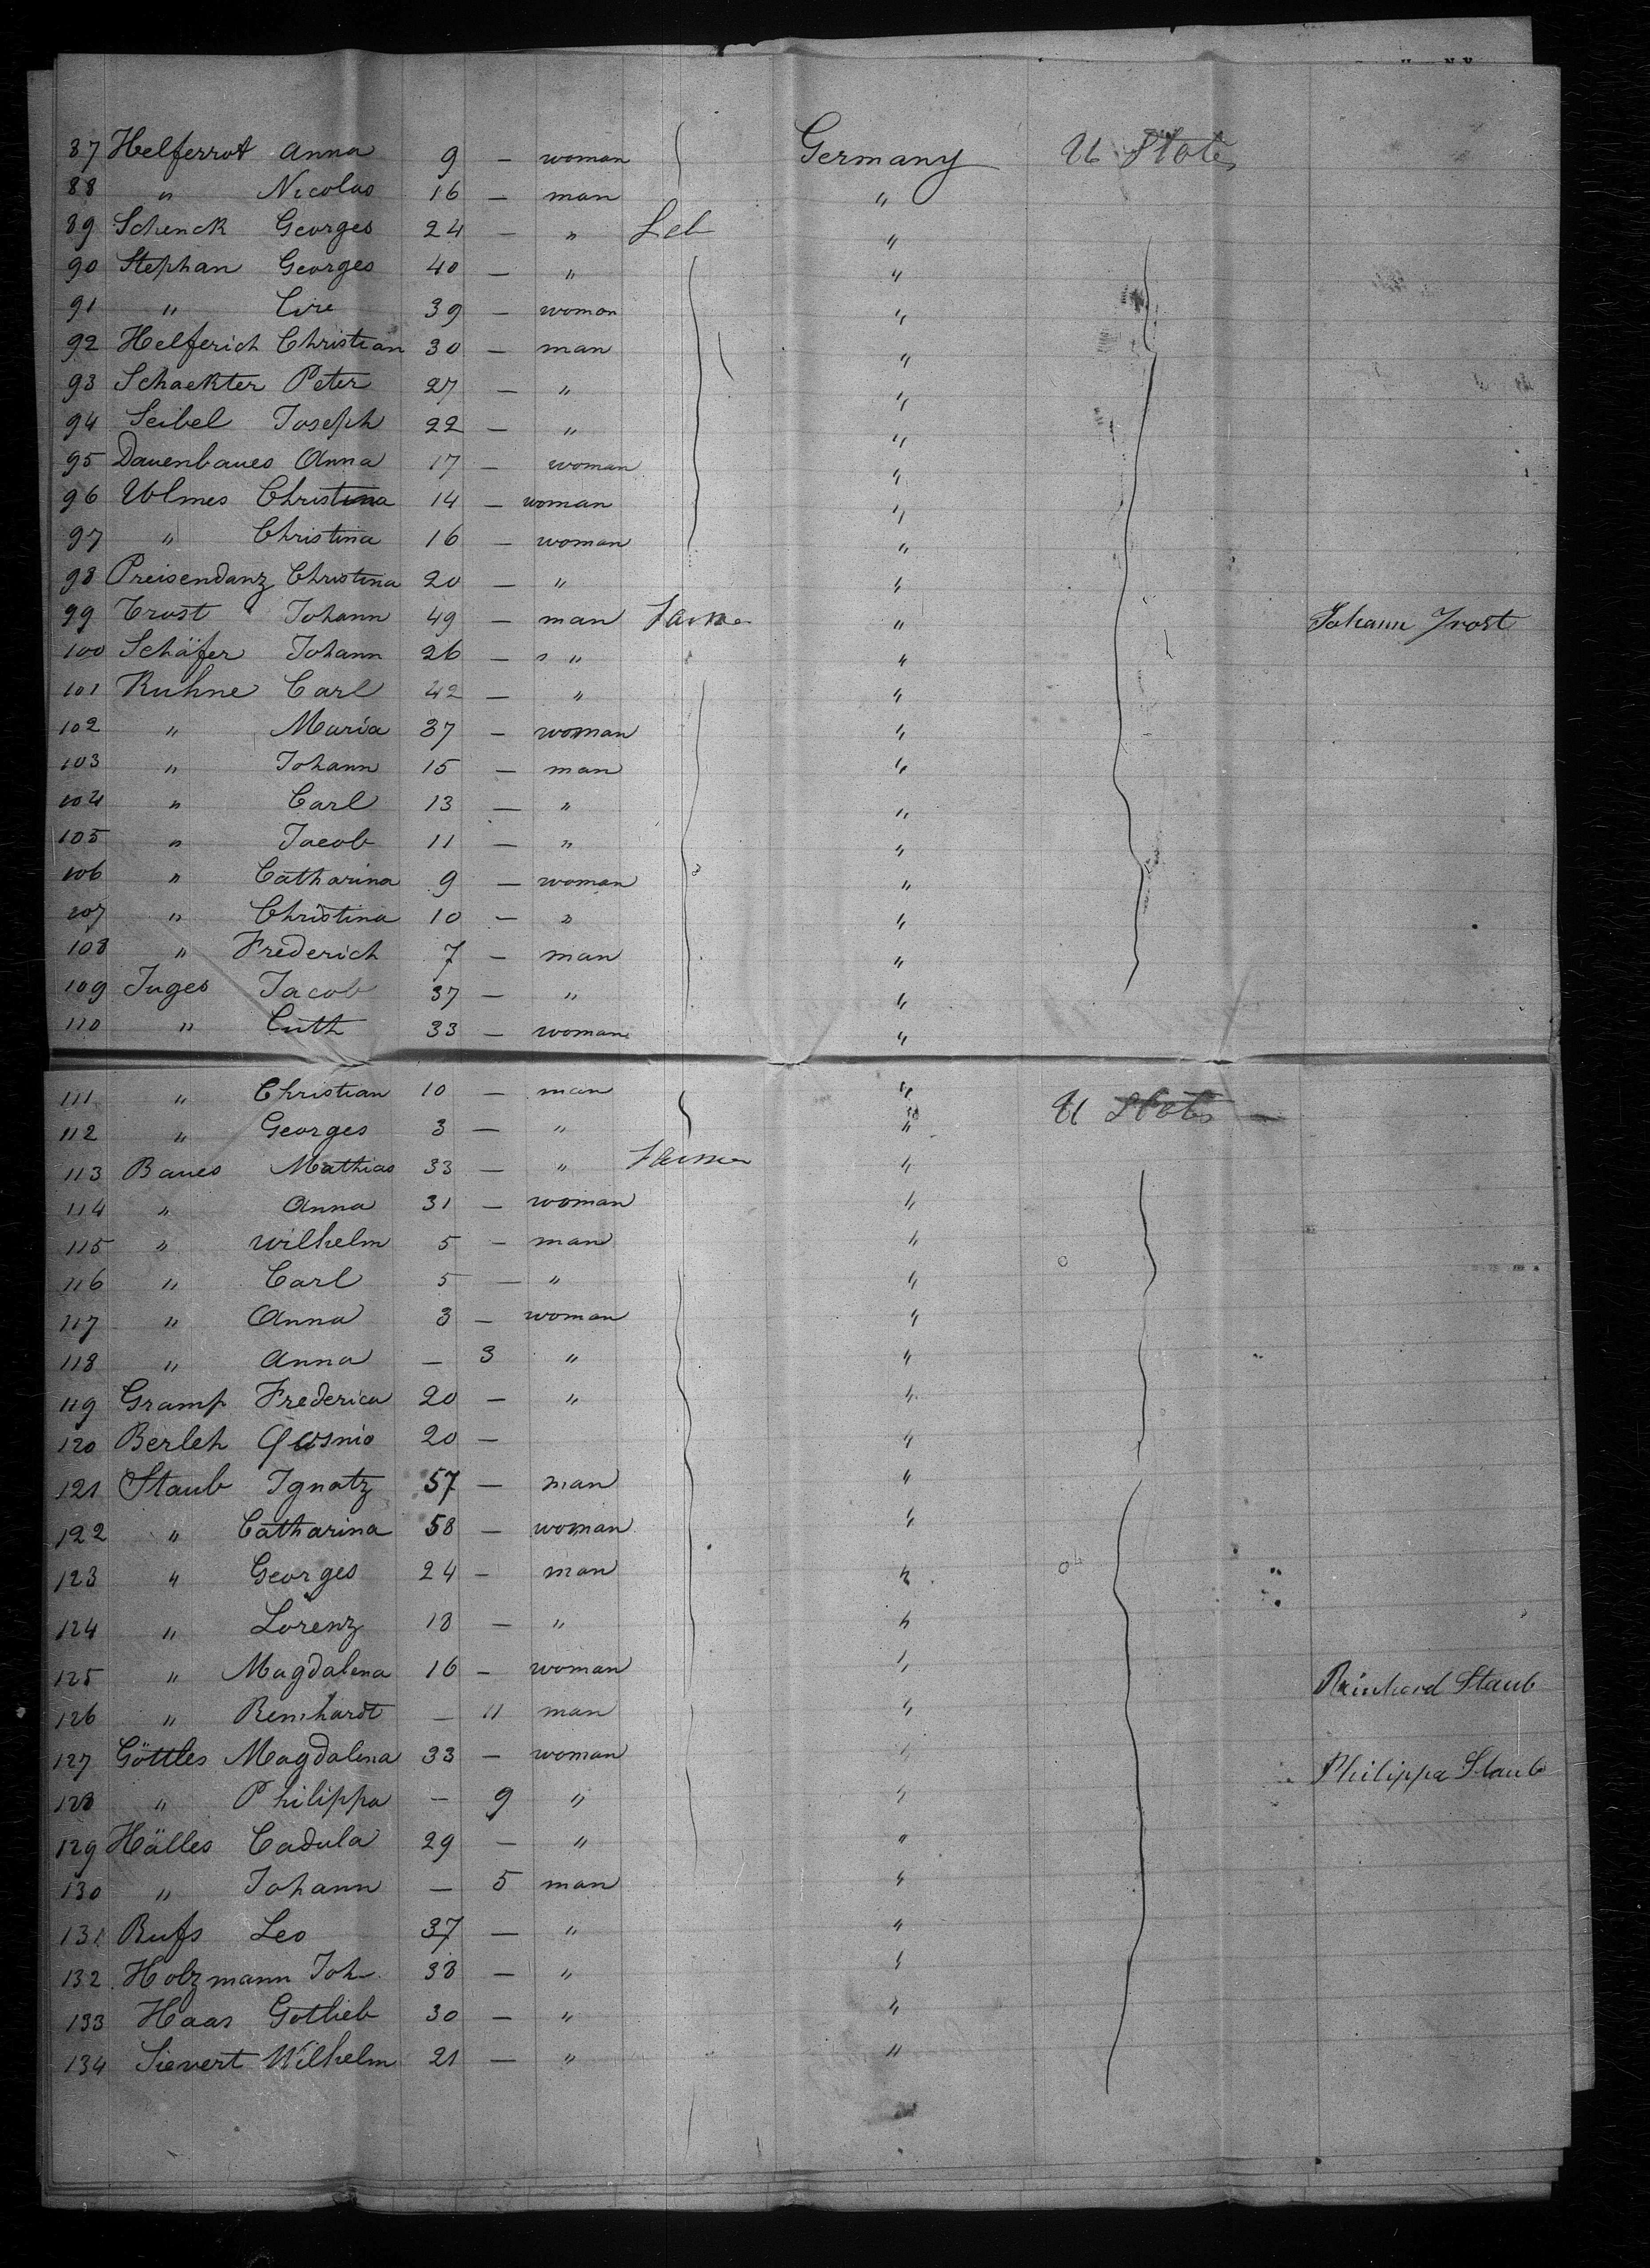 87 Helferrot Anna 9 — woman Germany U States
88 " Nicolas 16 — man "
89 Schenck Georges 24 — " Lab "
90 Stephan Georges 40 — " "
91 " Eve 39 — woman "
92 Helferich Christian 30 — man "
93 Schaekter Peter 27 — " "
94 Seibel Joseph 22 — " "
95 Dauenbaues Anna 17 — woman "
96 Ulmes Christina 14 — woman "
97 " Christina 16 — woman "
98 Preisendanz Christina 20 — " "
99 Trost Johann 49 — man Farmer " Johann Trost
100 Schäfer Johann 26 — " "
101 Kuhne Carl 42 — " "
102 " Maria 37 — woman "
103 " Johann 15 — man "
104 " Carl 13 — " "
105 " Jacob 11 — " "
106 " Catharina 9 — woman "
107 " Christina 10 — " "
108 " Frederich 7 — man "
109 Juges Jacob 37 — " "
110 " Cath 33 — woman "
111 " Christian 10 — man " U States
112 " Georges 3 — " "
113 Baues Mathias 33 — " Farmer "
114 " Anna 31 — woman "
115 " Wilhelm 5 — man "
116 " Carl 5 — " "
117 " Anna 3 — woman "
118 " Anna — 3 " "
119 Gramp Frederica 20 — " "
120 Berleh 20 — "
121 Staub Ignatz 57 — man "
122 " Catharina 58 — woman "
123 " Georges 24 — man "
124 " Lorenz 18 — " "
125 " Magdalena 16 — woman "
126 " Reinhardt — 11 man " Reinhard Staub
127 Göttles Magdalena 33 — woman "
128 " Philippa — 9 " " Philippa Staub
129 Hälles Cadula 29 — " "
130 " Johann — 5 man "
131 Rufs Leo 37 — " "
132 Holzmann Joh. 38 — " "
133 Haas Gotlieb 30 — " "
134 Sievert Wilhelm 21 — " "